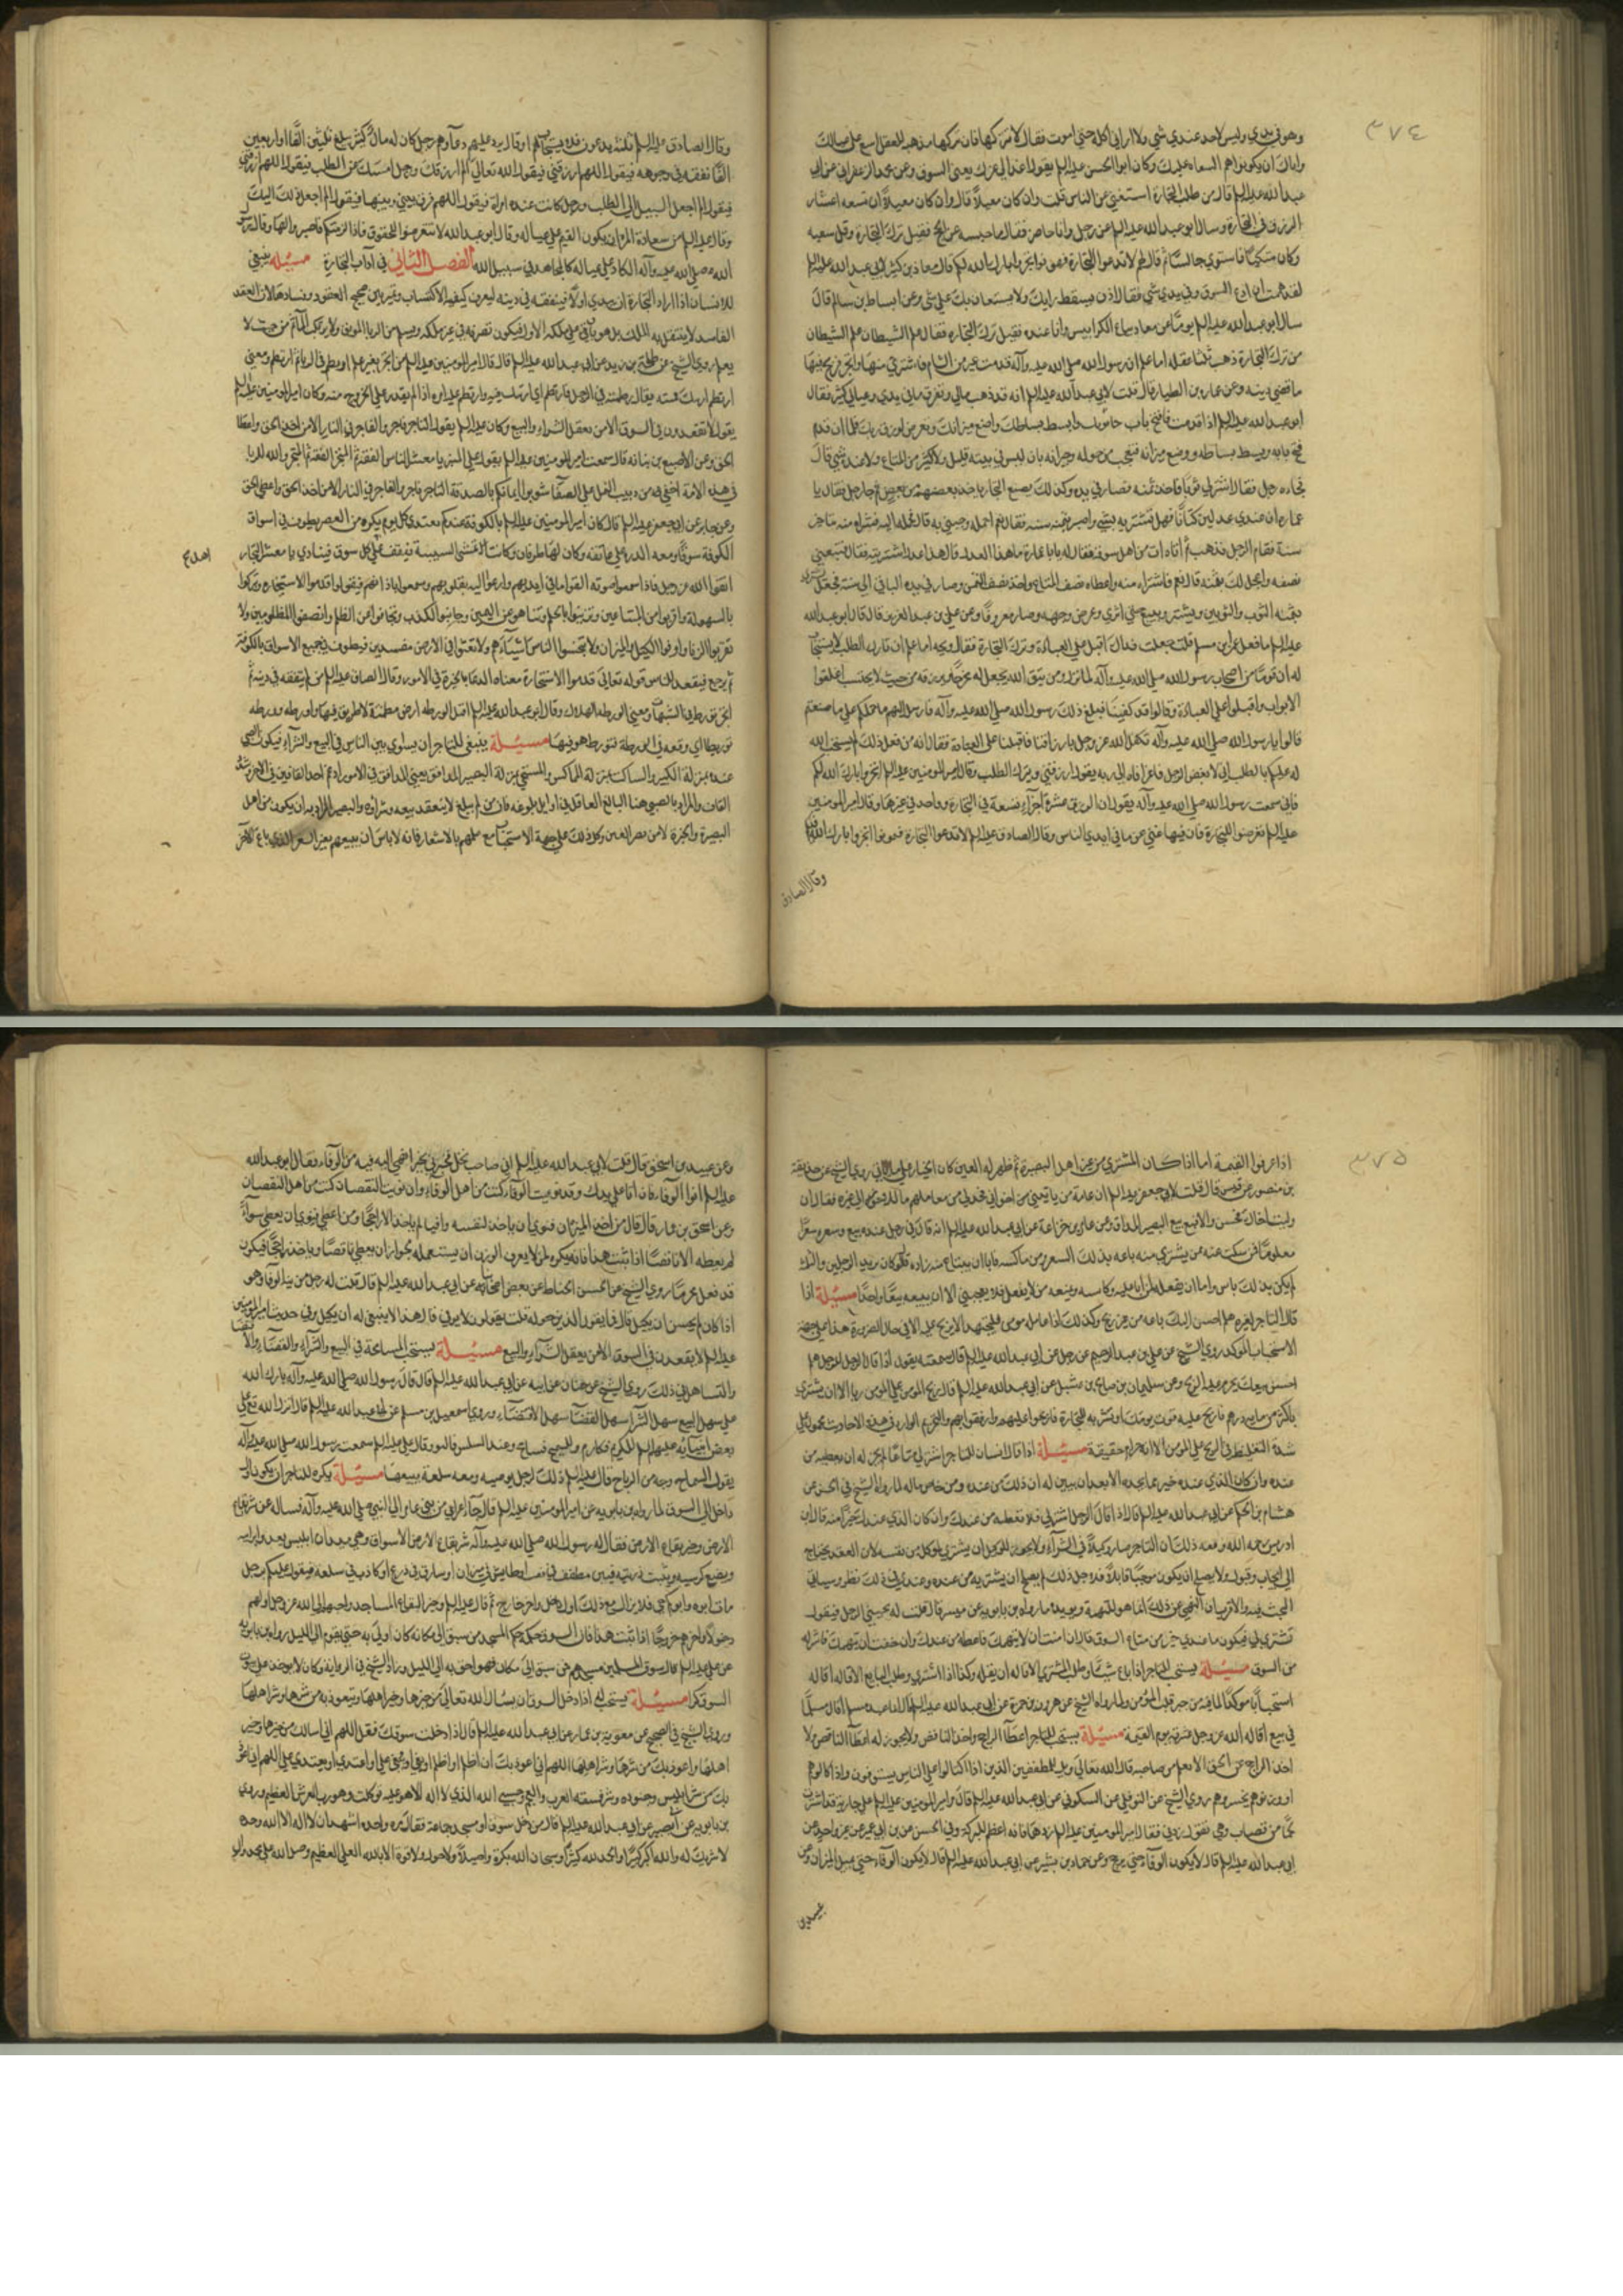 ٣٧٤
وهو في يدي وليس لاحد عندي شي ولا اراني اكله حتى اموت فقال لا تتركها فان تركها مذهبة للعقل اسع على عيالك
واياك ان يكون هم السعاة عليك وكان ابو الحسن عليه السلم يقول اغد الى عزك يعني السوق وعن محمد الزعفراني عن ابي
عبد الله عليه السلم قال من طلب التجارة استغنى عن الناس قلت وان كان معيلاً قال وان كان معيلاً ان تسعة اعشار
الرزق في التجارة وسال ابو عبد الله عليه السلم عن رجل وانا حاضر فقال ما حبسه عن الحج فقيل ترك التجارة وقل سعيه
وكان متكئًا فاستوى جالسًا ثم قال لهم لا تدعوا التجارة فتهونوا اتجروا بارك الله لكم قال معاذ بن كثير لابي عبد الله عليه السلم
لقد هممت ان ادع السوق وفي يدي شي فقال اذن يسقط رايك ولا يستعان بك على شي وعن اسباط بن سالم قال
سال ابو عبد الله عليه السلم يومًا عن معاذ بياع الكرابيس وانا عنده فقيل ترك التجارة فقال عمل الشيطان عمل الشيطان
من ترك التجارة ذهب ثلثا عقله اما علم ان رسول الله صلى الله عليه وآله قدمت عير من الشام فاشترى منها واتجر فربح فيها
ما قضى دينه وعن عمار بن الطيار قال قلت لابي عبد الله عليه السلم انه قد ذهب مالي وتفرق ما في يدي وعيالي كثير فقال
ابو عبد الله عليه السلم اذا قدمت فافتح باب حانوتك وابسط بساطك وضع ميزانك وتعرض لرزق ربك فلما ان قدم
فتح بابه وبسط بساطه ووضع ميزانه فتعجب من حوله وجيرانه بان ليس في بيته قليل ولا كثير من المتاع ولا عنده شي قال
فجاءه رجل فقال اشتر لي ثوبًا فاخذ ثمنه فصار في يده وكذلك يصنع التجار ياخذ بعضهم من بعض ثم جا رجل فقال يا
عماره ان عندي عدلين كتانًا فهل تشتريه بشي واصبر بثمنه سنه فقال نعم احمله وجئني به قال فحمله اليه فاشتراه منه بتاخير
سنة فقام الرجل فذهب ثم اتاه آت من اهل سوقه فقال له يا با عمارة ما هذا العدل قال هذا عدل اشتريته فقال فتبيعني
نصفه واعجل لك بثمنه قال نعم فاشتراه منه واعطاه نصف المتاع واخذ نصف الثمن وصار في يده الباقي الى سنة فجعل يشتري
بثمنه الثوب والثوبين ويشتري ويبيع حتى اثرى وعرض وجهه وصار معروفًا وعن علي بن عبد العزيز قال قال ابو عبد الله
عليه السلم ما فعل عمر بن مسلم قلت جعلت فداك اقبل على العبادة وترك التجارة فقال ويحه اما علم ان تارك الطلب لا يستجاب
له ان قومًا من اصحاب رسول الله صلى الله عليه وآله لما نزل ومن يتق الله يجعل له مخرجًا ويرزقه من حيث لا يحتسب اغلقوا
الابواب واقبلوا على العبادة وقالوا قد كفينا فبلغ ذلك رسول الله صلى الله عليه وآله فارسل اليهم ما حملكم على ما صنعتم
قالوا يا رسول الله صلى الله عليه وآله تكفل الله عز وجل بارزاقنا فاقبلنا على العبادة فقال انه من فعل ذلك لم يستجب الله
له عليكم بالطلب اني لابغض الرجل فاغرًا فاه الى ربه يقول ارزقني ويترك الطلب وقال امير المومنين عليه السلم اتجروا بارك الله لكم
فاني سمعت رسول الله صلى الله عليه وآله يقول ان الرزق عشرة اجزاء تسعة في التجارة وواحد في غيرها وقال امير المومنين
عليه السلم تعرضوا للتجارة فان فيها غنى عن ما في ايدي الناس وقال الصادق عليه السلم لا تدعوا التجارة فتهونوا اتجروا بارك الله لكم
وقال الصادق
وقال الصادق عليه السلم ثلثة يدعون فلا يستجاب لهم او قال يرد عليهم دعاؤهم رجل كان له مال كثير يبلغ ثلثين الفًا او اربعين
الفًا فانفقه في وجوهه فيقول اللهم ارزقني فيقول الله تعالى الم ارزقك ورجل امسك عن الطلب فيقول اللهم ارزقني
فيقول الم اجعل السبيل الى الطلب ورجل كانت عنده امراة فيقول اللهم فرق بيني وبينها فيقول الم اجعل ذلك اليك
وقال عليه السلم من سعادة المرء ان يكون القيم على عياله وقال ابو عبد الله لا تتعرضوا للحقوق فاذا لزمتكم فاصبروا لها وقال رسول
الله صلى الله عليه وآله الكاد على عياله كالمجاهد في سبيل الله الفصل الثاني في آداب التجارة مسئلة ينبغي
للانسان اذا اراد التجارة ان يبتدي اولاً فيتفقه في دينه ليعرف كيفية الاكتساب ويميز بين صحيح العقود وفسادها لان العقد
الفاسد لا ينتقل به الملك بل هو باق على ملكه الاول فيكون تصرفه في غير ملكه ويسلم من الربا الموبق ولا يرتكب الماثم من حيث لا
يعلم روى الشيخ عن طلحة بن زيد عن ابي عبد الله عليه السلم قال قال امير المومنين عليه السلم من اتجر بغير علم ارتطم في الربا ثم ارتطم ومعنى
ارتطم ارتبك فيه يقال رطمته في الوحل فارتطم اي ارتبك فيه وارتطم عليه امره اذا لم يقدر على الخروج منه وكان امير المومنين عليه السلم
يقول لا تقعدون في السوق الا من يعقل الشراء والبيع وكان عليه السلم يقول التاجر فاجر والفاجر في النار الا من اخذ الحق واعطا
الحق وعن الاصبغ بن نباته قال سمعت امير المومنين عليه السلم يقول على المنبر يا معشر الناس الفقه ثم المتجر الفقه ثم المتجر والله للربا
في هذه الامة اخفى من دبيب النمل على الصفا شوبوا ايمانكم بالصدقة التاجر فاجر والفاجر في النار الا من اخذ الحق واعطى الحق
وعن جابر عن ابي جعفر عليه السلم قال كان امير المومنين عليه السلم بالكوفة عندكم يغتدي كل يوم بكرة من القصر يطوف في اسواق
الكوفة سوقًا سوقًا ومعه الدرة على عاتقه وكان لها طرفان وكانت تسمى السبيبة فيقف على كل سوق فينادي يا معشر التجار
اهل ع
اتقوا الله عز وجل فاذا سمعوا صوته القوا ما في ايديهم وارعوا اليه بقلوبهم وسمعوا باذانهم فيقول قدموا الاستخاره وتبركوا
بالسهولة واقربوا من المبتاعين وتزينوا بالحلم وتناهوا عن اليمين وجانبوا الكذب وتجافوا عن الظلم وانصفوا المظلومين ولا
تقربوا الربا واوفوا الكيل والميزان ولا تبخسوا الناس اشياءهم ولا تعثوا في الارض مفسدين فيطوف في جميع الاسواق بالكوفة
ثم يرجع فيقعد للناس قوله تعالى قدموا الاستخارة معناه الدعا بالخيرة في الامور وقال الصادق عليه السلم من لم يتفقه في دينه ثم
اتجر تورط في الشبهات ومعنى الورطه الهلاك وقال ابو عبد الله عليه السلم اصل الورطه ارض مطمئنة لا طريق فيها واورطه وورطه
توريطًا اي وقعه في الورطة فتورط هو فيها مسئلة ينبغي للتاجر ان يساوي بين الناس في البيع والشراء فيكون الصبي
عنده بمنزلة الكبير والساكت بمنزلة المماكس والمستحي بمنزلة البصير المداقق يعني المدقق في الامور ادغم احد القافين في الاخر وشدد
القاف والمراد بالصبي هنا البالغ العاقل في اوايل بلوغه فان من لم يبلغ لا ينعقد بيعه وشراؤه والبصير المراد به ان يكون من اهل
البصيرة والخبرة لا من بصر العين وكل ذلك على جهة الاستحباب مع علمهم بالاسعار فانه لا باس ان يبيعهم بغير السعر الذي باع الاخر
٣٧٥
اذا عرفوا القيمة اما اذا كان المشتري من غير اهل البصيرة ثم ظهر له الغبن كان الخيار
بن منصور عن قيس قال قلت لابي جعفر عليه السلم ان عامة من ياتيني من اخواني فحد لي من معاملتهم ما لا اجوزه الى غيره فقال ان
وليت اخاك فحسن والا فبع بيع البصير المداق وعن عامر بن خزاعة عن ابي عبد الله عليه السلم انه قال في رجل عنده بيع وسعره سعرًا
معلومًا فمن سكت عنه ممن يشتري منه باعه بذلك السعر ومن ماكسه فابا ان يبتاع منه زاده قال لو كان يزيد الرجلين والثلثة
لم يكن بذلك باس واما ان يفعله لمن ابا عليه وكاسه ويمنعه من لا يفعل فلا يعجبني الا ان يبيعه بيعًا واحدًا مسئلة اذا
قال التاجر لغيره هلم احسن اليك باعه من غير ربح وكذلك اذا عامل مومن فليجتهد ان لا يربح عليه الا في حال الضرورة هذا على جهة
الاستحباب الموكد روى الشيخ عن علي بن عبد الرحيم عن رجل عن ابي عبد الله عليه السلم قال سمعته يقول اذا قال الرجل للرجل هلم
احسن بيعك يحرم عليه الربح وعن سليمان بن صالح عن شبل عن ابي عبد الله عليه السلم قال ربح المومن على المومن ربا الا ان يشتري
باكثر من مايه درهم فاربح عليه قوت يومك او يشتريه للتجارة فاربحوا عليهم وارفقوا بهم والتحريم الوارد في هذه الاحاديث محمول على
شدة التغليظ في الربح على المومن لا انه حرام حقيقة مسئلة اذا قال انسان للتاجر اشتر لي متاعًا لم يجز له ان يعطيه من
عنده وان كان الذي عنده خير مما يجده الا بعد ان يبين له ان ذلك من عنده ومن خاص ماله لما رواه الشيخ في الحسن عن
هشام بن الحكم عن ابي عبد الله عليه السلم قال اذا قال لك الرجل اشتر لي فلا تعطه من عندك وان كان الذي عندك خيرًا منه قال ابن
ادريس رحمه الله وفقه ذلك ان التاجر صار وكيلاً في الشراء ولا يجوز للوكيل ان يشتري لموكله من نفسه لان العقد يحتاج
الى ايجاب وقبول ولا يصح ان يكون موجبًا قابلاً فلاجل ذلك لم يصح ان يشتريه من عنده وعندي في ذلك نظر وسياتي
البحث فيه والاقرب ان النهي عن ذلك انما هو للتهمة ويويده ما رواه بن بابويه عن ميسر قال قلت له يجيئني الرجل فيقول
تشتري لي فيكون ما عندي خير من متاع السوق قال ان امنت ان لا يتهمك فاعطه من عندك وان خفت ان يتهمك فاشتر له
من السوق مسئلة يستحب للتاجر اذا باع شيئًا وطلب المشتري الاقالة ان يقيله وكذا اذا اشترى وطلب البايع الاقاله اقاله
استحبابًا موكدًا لما فيه من جبر قلب المومن ولما رواه الشيخ عن هرون بن حمزة عن ابي عبد الله عليه السلم قال ايما عبد مسلم اقال مسلمًا
في بيع اقاله الله عز وجل عثرته يوم القيمة مسئلة يستحب للتاجر اعطا الراجح واخذ الناقص ولا يجوز له اعطا الناقص ولا
اخذ الراجح عن الحق الا بعلم من صاحبه قال الله تعالى ويل للمطففين الذين اذا اكتالوا على الناس يستوفون واذا كالوهم
او وزنوهم يخسرون روى الشيخ عن النوفلي عن السكوني عن ابي عبد الله عليه السلم قال مر امير المومنين عليه السلم على جارية قد اشترت
لحمًا من قصاب وهي تقول زدني فقال امير المومنين عليه السلم زدها فانه اعظم للبركة وفي الحسن عن بن ابي عمير عن غير واحد عن
ابي عبد الله عليه السلم قال لا يكون الوفاء حتى يرجح وعن حماد بن بشير عن ابي عبد الله عليه السلم قال لا يكون الوفاء حتى يميل الميزان وعن
عبيد بن
وعن عبيد بن اسحق قال قلت لابي عبد الله عليه السلم اني صاحب نخل فخبرني بحد انتهي اليه فيه من الوفاء فقال ابو عبد الله
عليه السلم انوا الوفاء فان اتا على يدك وقد نويت الوفاء كنت من اهل الوفاء وان نويت النقصان كنت من اهل النقصان
وعن اسحق بن عمار قال قال من اخذ الميزان فنوى ان ياخذ لنفسه وافيًا لم ياخذ الا راجحًا ومن اعطى فنوى ان يعطي سواءً
لم يعطه الا ناقصًا اذا ثبت هذا فانه يكره لمن لا يعرف الوزن ان يستعمله لجواز ان يعطي ناقصًا وياخذ راجحًا فيكون
قد فعل محرمًا روى الشيخ عن الحسن الحناط عن بعض اصحابه عن ابي عبد الله عليه السلم قال قلت له رجل من نيته الوفا وهو
اذا كال لم يحسن ان يكيل قال فما يقول الذين حوله قلت يقولون لا يوفي قال هذا لا ينبغي له ان يكيل وفي حديث امير المومنين
عليه السلم لا يقعدن في السوق الا من يعقل الشراء والبيع مسئلة يستحب المسامحة في البيع والشراء والقضاء والاقتضا
والتساهل في ذلك روى الشيخ عن حنان عن ابيه عن ابي عبد الله عليه السلم قال قال رسول الله صلى الله عليه وآله بارك الله
على سهل البيع سهل الشرا سهل القضا سهل الاقتضاء وروى اسمعيل بن مسلم عن ابي عبد الله عليه السلم قال انزل الله تع على
بعض انبيائه عليهم السلم للكريم فكارم وللسمح فسامح وعند الشكس فالتو وقال علي عليه السلم سمعت رسول الله صلى الله عليه وآله
يقول السماح وجه من الرباح قال عليه السلم ذلك لرجل يوصيه ومعه سلعة يبيعها مسئلة يكره للتاجر ان يكون اول
داخل الى السوق لما رواه بن بابويه عن امير المومنين عليه السلم قال جاء اعرابي من بني عامر الى النبي صلى الله عليه وآله فساله عن شر بقاع
الارض وخير بقاع الارض فقال له رسول الله صلى الله عليه وآله شر بقاع الارض الاسواق وهي ميدان ابليس يغدو برايته
ويضع كرسيه ويبث ذريته فبين مطفف في قفيز او طايش في ميزان او سارق في ذرع او كاذب في سلعة فيقول عليكم برجل
مات ابوه وابوكم حي فلا يزال مع ذلك اول داخل واخر خارج ثم قال عليه السلم وخير البقاع المساجد واحبهم الى الله عز وجل اولهم
دخولاً واخرهم خروجًا اذا ثبت هذا فان السوق حكمه حكم المسجد من سبق الى مكانه كان اولى به حتى يقوم الى الليل رواه بن بابويه
عن علي عليه السلم قال سوق المسلمين مسجدهم فمن سبق الى مكان فهو احق به الى الليل وزاد الشيخ في الرواية وكان لا يوخذ على بيوت
السوق كرا مسئلة يستحب له اذا دخل السوق ان يسال الله تعالى من خيرها وخير اهلها ويتعوذ به من شرها وشر اهلها
وروى الشيخ في الصحيح عن معوية بن عمار عن ابي عبد الله عليه السلم قال اذا دخلت سوقك فقل اللهم اني اسالك من خيرها وخير
اهلها واعوذ بك من شرها وشر اهلها اللهم اني اعوذ بك ان اظلم او اظلم او ابغي او يبغى علي او اعتدي او يعتدى علي اللهم اني اعوذ
بك من شر ابليس وجنوده وشر فسقة العرب والعجم وحسبي الله الذي لا اله الا هو عليه توكلت وهو رب العرش العظيم وروى
بن بابويه عن ابي بصير عن ابي عبد الله عليه السلم قال من دخل سوقًا او مسجد جماعة فقال مره واحده اشهد ان لا اله الا الله وحده
لا شريك له والله اكبر كبيرًا والحمد لله كثيرًا وسبحان الله بكرة واصيلاً ولا حول ولا قوة الا بالله العلي العظيم وصلى الله على محمد واله